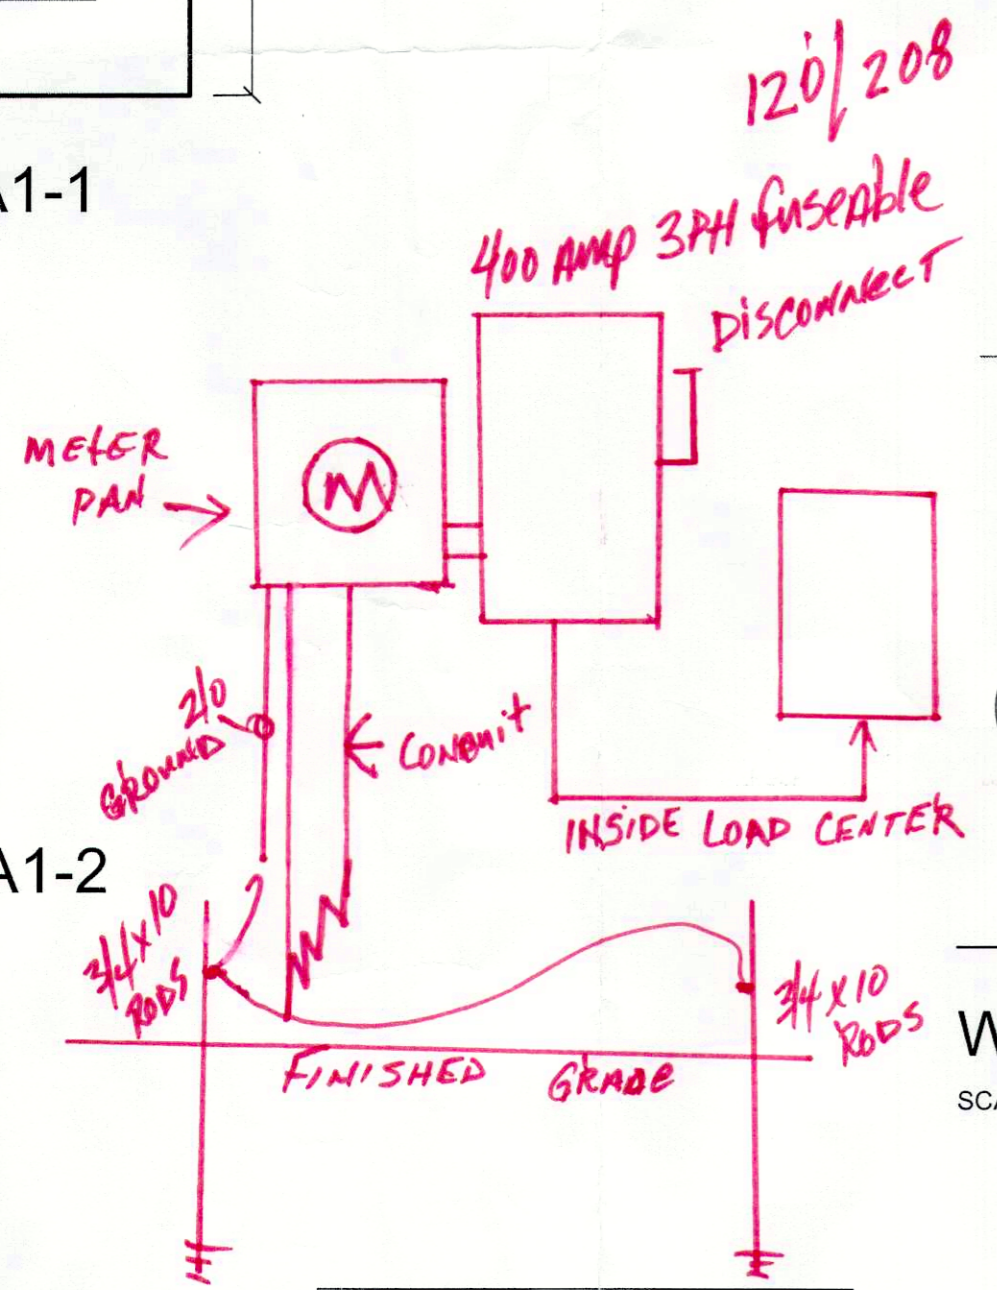 120/208
A1-1
400 Amp 3PH fuseable
DISCONNECT
METER
PAN
M
2/0
GROUND
CONDUIT
INSIDE LOAD CENTER
A1-2
3/4 x 10
RODS
3/4 x 10
RODS
FINISHED GRADE
W
SCA